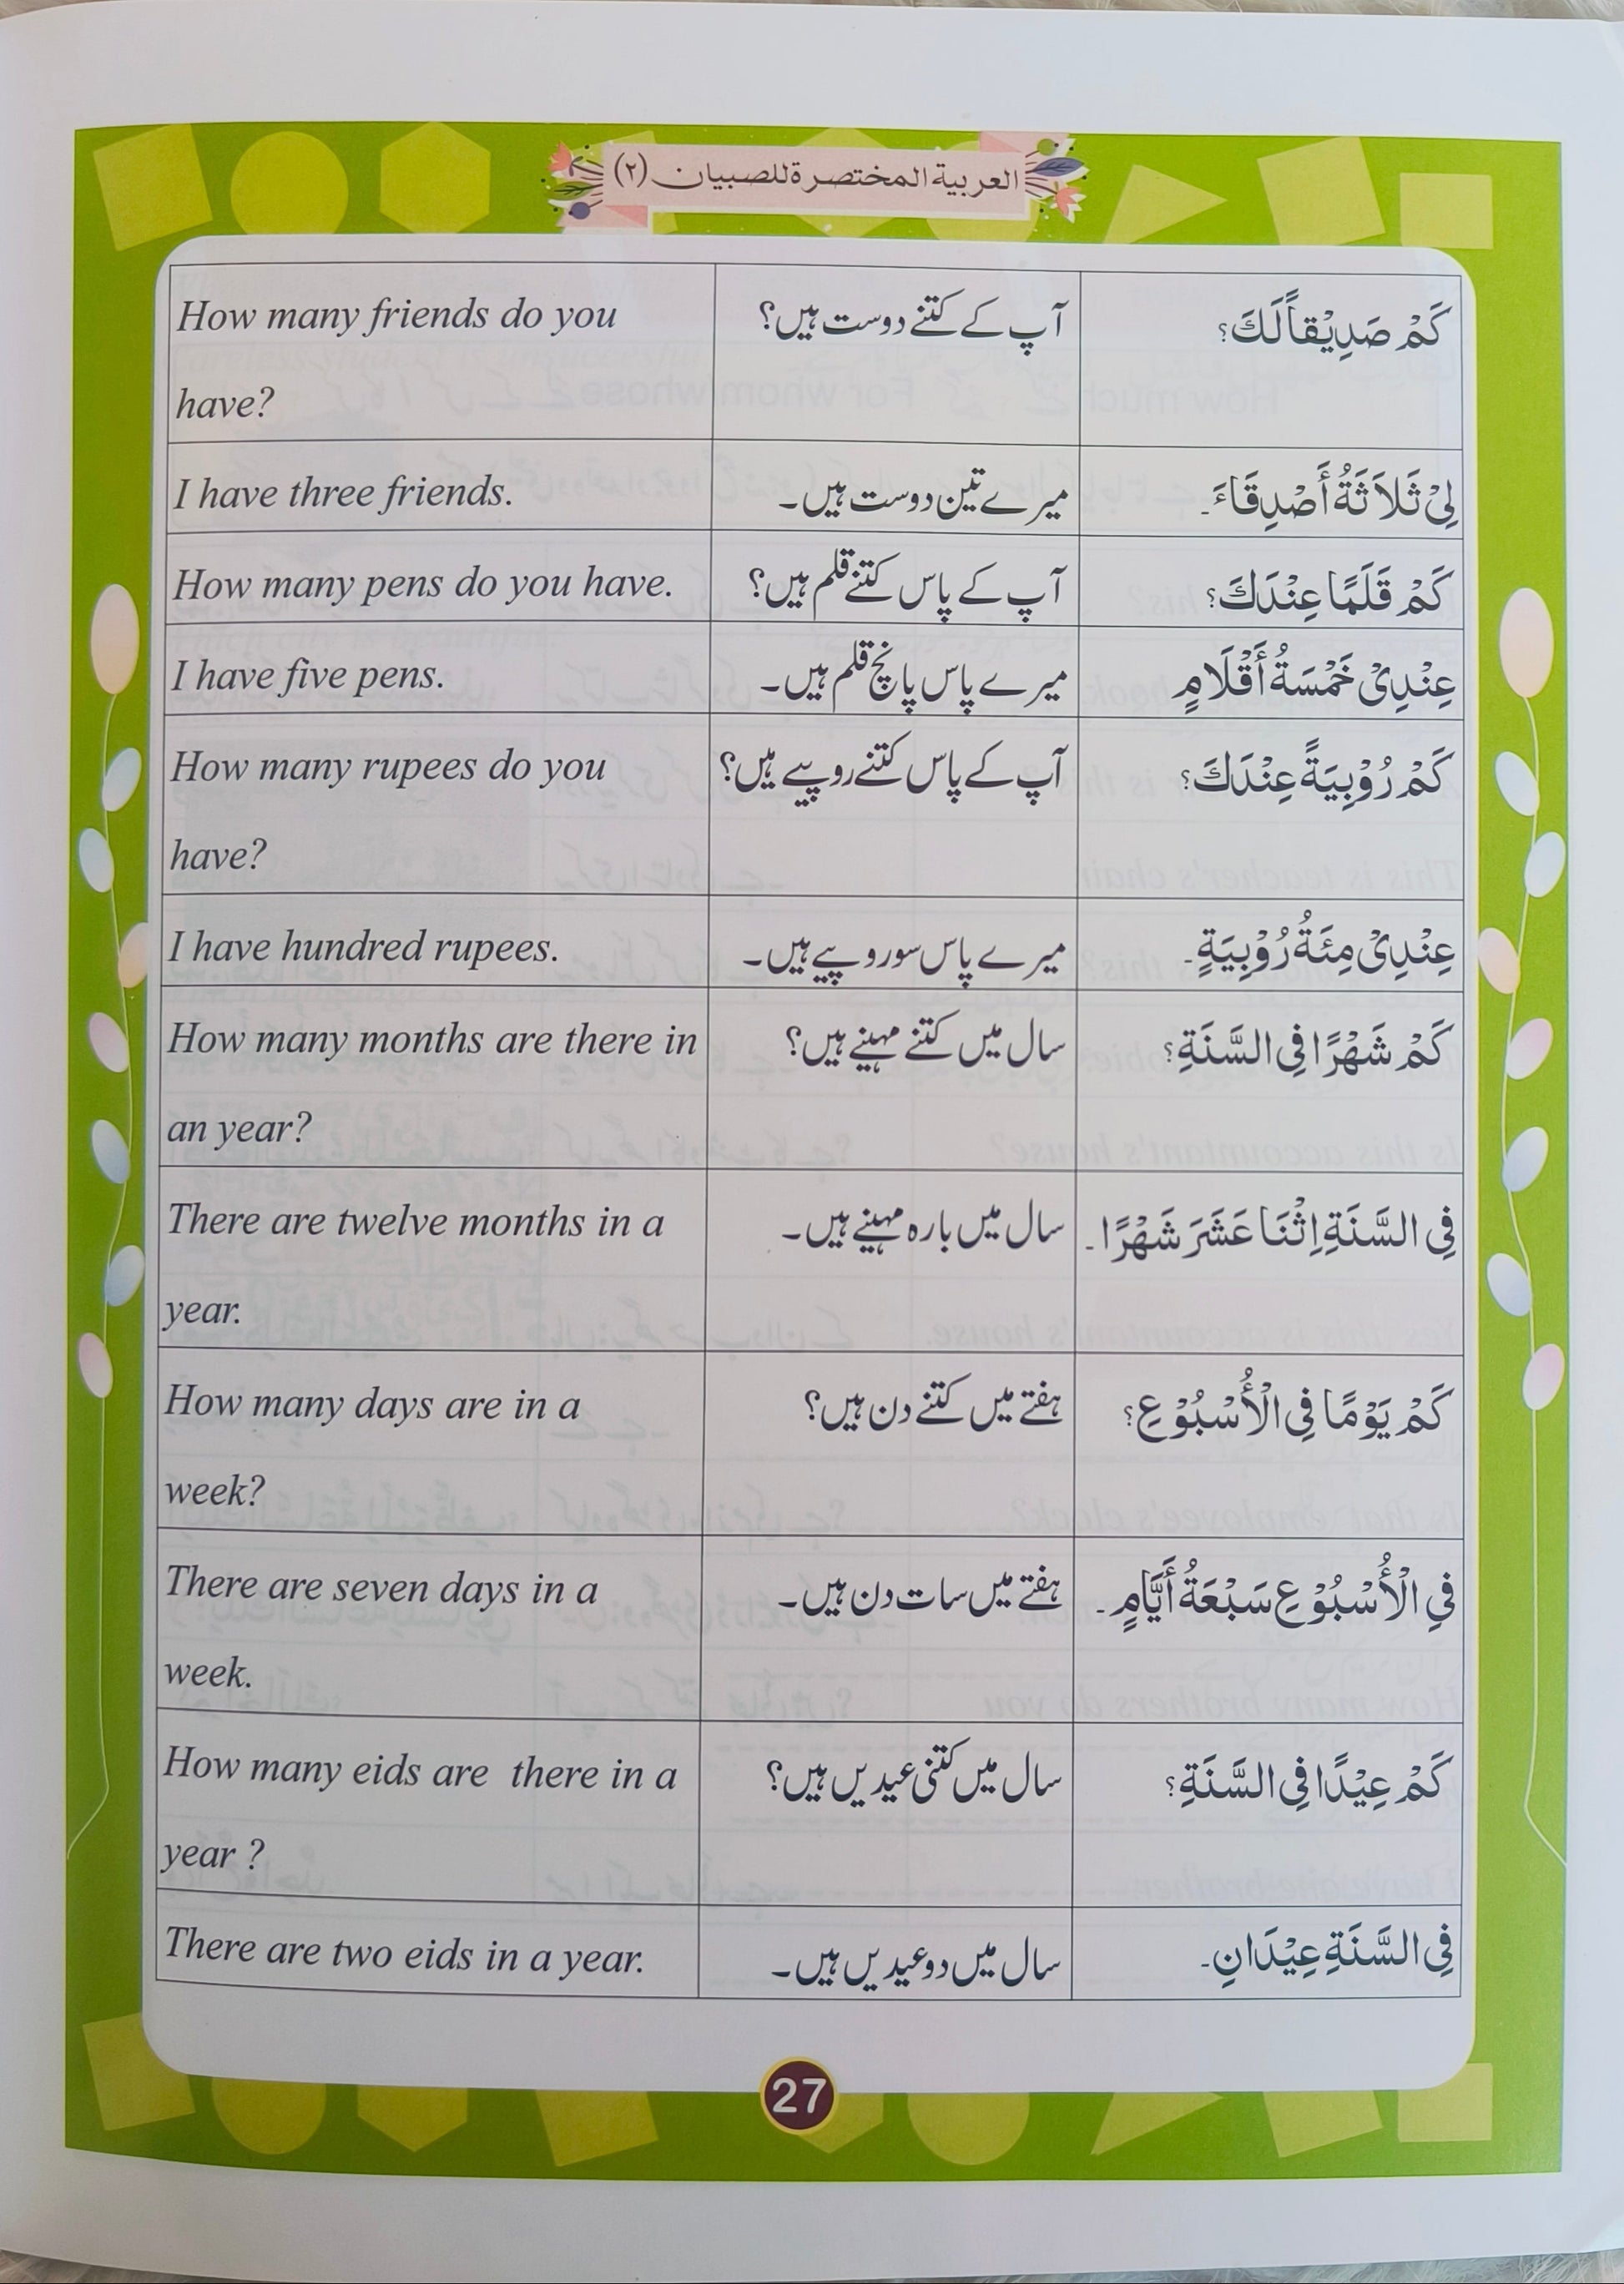 العربية المختصرة للصبيان (٢)
How many friends do you
have?
آپ کے کتنے دوست ہیں؟
كَمْ صَدِيْقاً لَكَ؟
I have three friends.
میرے تین دوست ہیں۔
لِىْ ثَلَاثَةُ أَصْدِقَاءَ۔
How many pens do you have.
آپ کے پاس کتنے قلم ہیں؟
كَمْ قَلَمًا عِنْدَكَ؟
I have five pens.
میرے پاس پانچ قلم ہیں۔
عِنْدِىْ خَمْسَةُ أَقْلَامٍ
How many rupees do you
have?
آپ کے پاس کتنے روپیے ہیں؟
كَمْ رُوْبِيَةً عِنْدَكَ؟
I have hundred rupees.
میرے پاس سو روپیے ہیں۔
عِنْدِىْ مِئَةُ رُوْبِيَةٍ۔
How many months are there in
an year?
سال میں کتنے مہینے ہیں؟
كَمْ شَهْرًا فِى السَّنَةِ؟
There are twelve months in a
year.
سال میں بارہ مہینے ہیں۔
فِى السَّنَةِ اِثْنَا عَشَرَ شَهْرًا۔
How many days are in a
week?
ہفتے میں کتنے دن ہیں؟
كَمْ يَوْمًا فِى الْأُسْبُوْعِ؟
There are seven days in a
week.
ہفتے میں سات دن ہیں۔
فِي الْأُسْبُوْعِ سَبْعَةُ أَيَّامٍ۔
How many eids are there in a
year ?
سال میں کتنی عیدیں ہیں؟
كَمْ عِيْدًا فِى السَّنَةِ؟
There are two eids in a year.
سال میں دو عیدیں ہیں۔
فِى السَّنَةِ عِيْدَانِ۔
27